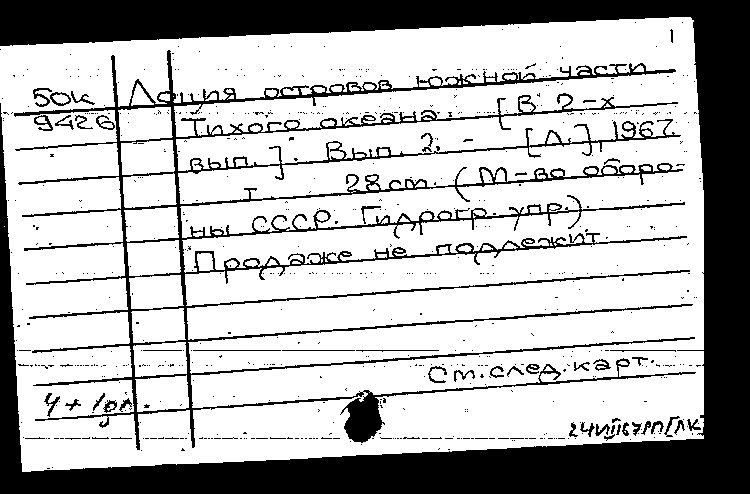 1
50к Лоция островов южной части
9426 Тихого океана. [В 2-х
вып.]. Вып. 2. - [Л.], 1967.
т. 28 см. (М-во оборо-
ны СССР. Гидрогр. упр.).
Продаже не подлежит.
См. след. карт.
4 +
[ЛК]